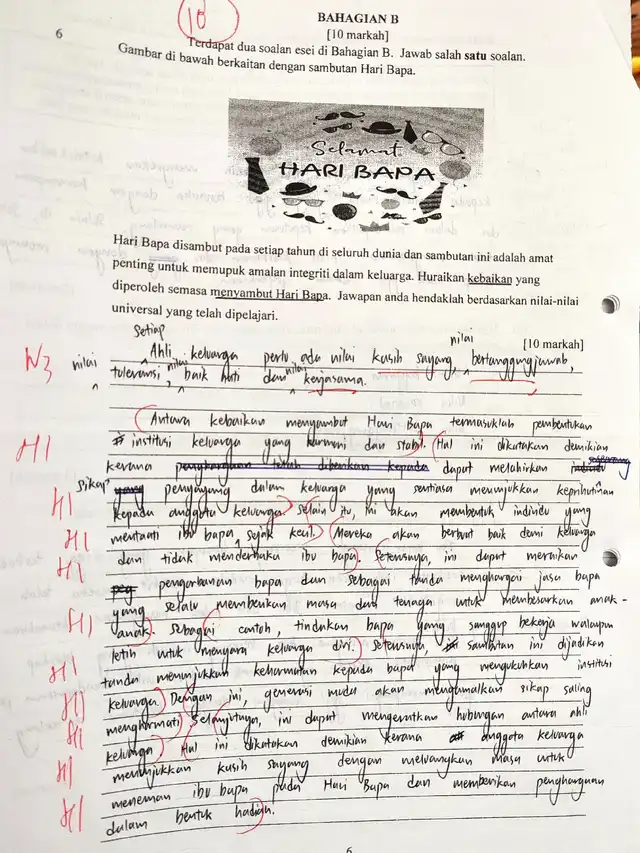 10
BAHAGIAN B
[10 markah]
6
Terdapat dua soalan esei di Bahagian B. Jawab salah satu soalan.
Gambar di bawah berkaitan dengan sambutan Hari Bapa.
Selamat
HARI BAPA
Hari Bapa disambut pada setiap tahun di seluruh dunia dan sambutan ini adalah amat
penting untuk memupuk amalan integriti dalam keluarga. Huraikan kebaikan yang
diperoleh semasa menyambut Hari Bapa. Jawapan anda hendaklah berdasarkan nilai-nilai
universal yang telah dipelajari.
[10 markah]
N3 Setiap Ahli keluarga perlu ada nilai kasih sayang, nilai bertanggungjawab,
nilai toleransi, nilai baik hati dan nilai kerjasama.
Antara kebaikan menyambut Hari Bapa termasuklah pembentukan
H1 institusi keluarga yang harmoni dan stabil. Hal ini dikatakan demikian
kerana penghargaan telah diberikan kepada dapat melahirkan seseorang
H1 sikap penyayang dalam keluarga yang sentiasa menunjukkan keprihatinan
kepada anggota keluarga. Selain itu, ini akan membentuk individu yang
H1 mentaati ibu bapa sejak kecil. Mereka akan berbuat baik demi keluarga
H1 dan tidak menderhaka ibu bapa. Seterusnya, ini dapat meraikan
pengorbanan bapa dan sebagai tanda menghargai jasa bapa
yang selalu memberikan masa dan tenaga untuk membesarkan anak-
H1 anak. Sebagai contoh, tindakan bapa yang sanggup bekerja walaupun
letih untuk menyara keluarga diri. Seterusnya, sambutan ini dijadikan
H1 tanda menunjukkan kehormatan kepada bapa yang mengukuhkan institusi
H1 keluarga. Dengan ini, generasi muda akan mengamalkan sikap saling
H1 menghormati. Selanjutnya, ini dapat mengeratkan hubungan antara ahli
keluarga. Hal ini dikatakan demikian kerana anggota keluarga
H1 menunjukkan kasih sayang dengan meluangkan masa untuk
meneman ibu bapa pada Hari Bapa dan memberikan penghargaan
H1 dalam bentuk hadiah.
6